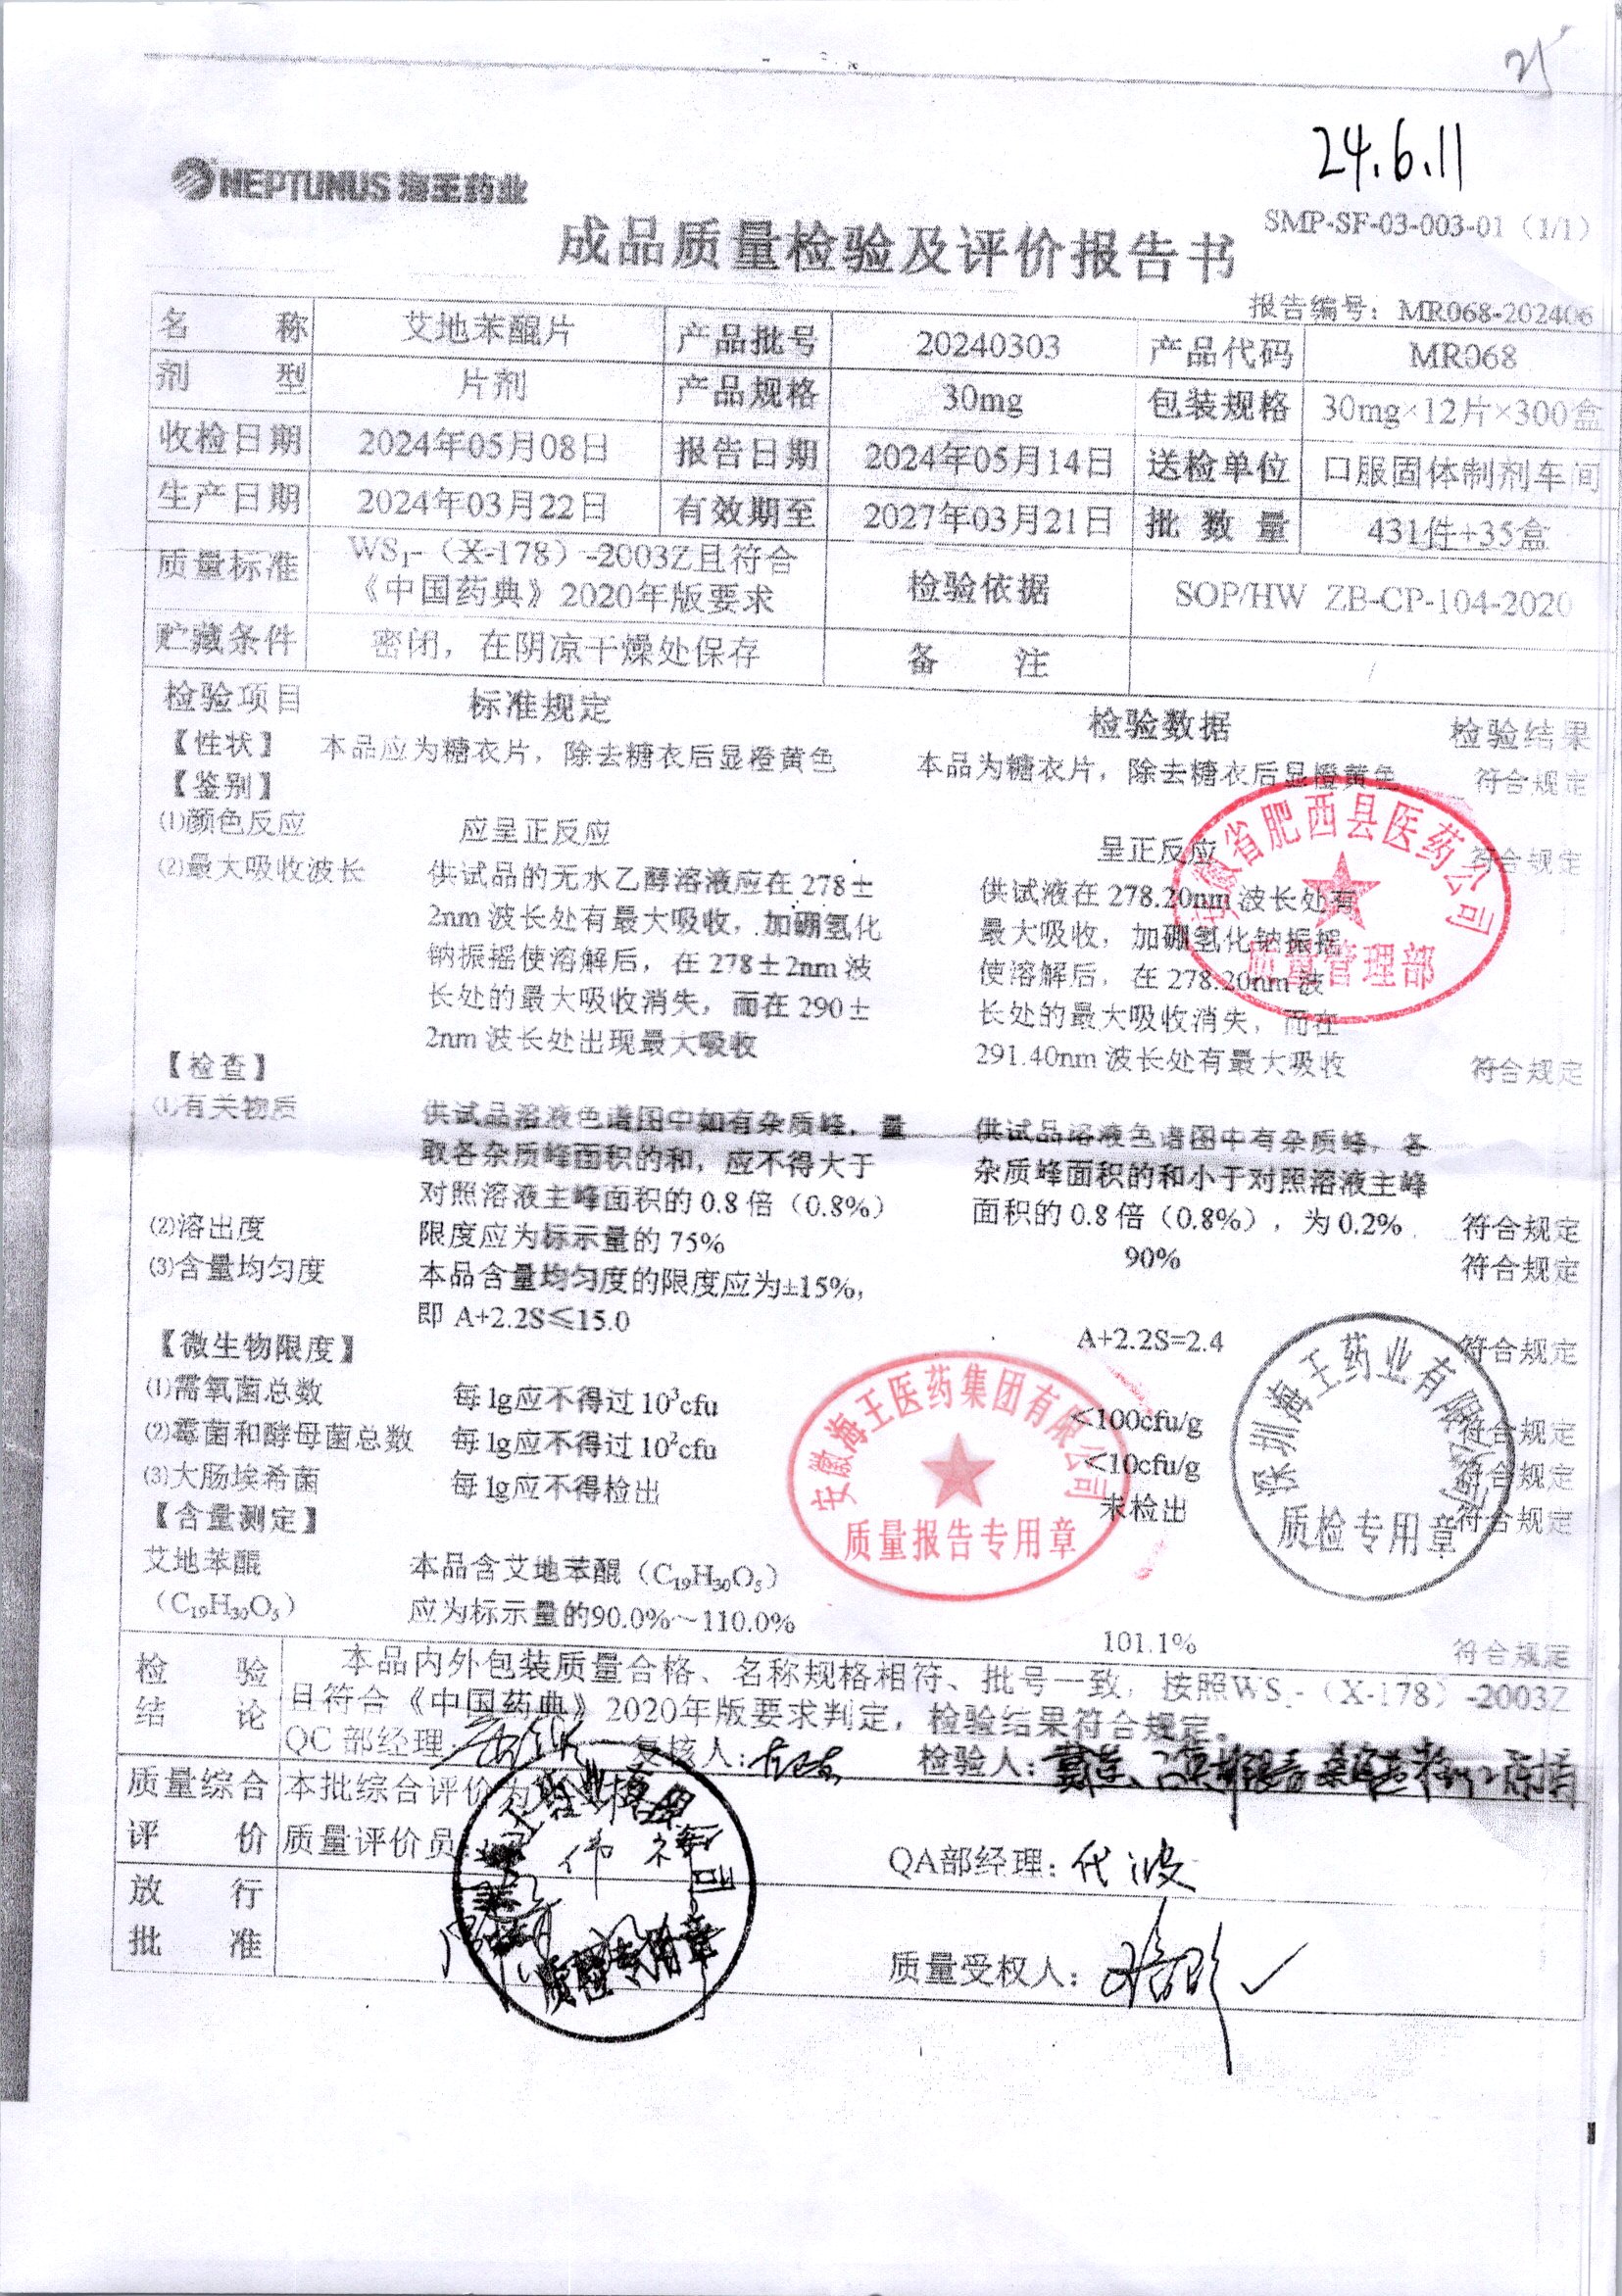 24.6.11
NEPTUNUS 海王药业
SMP-SF-03-003-01（1/1）
成品质量检验及评价报告书
报告编号：MR068-202406
名 称 艾地苯醌片 产品批号 20240303 产品代码 MR068
剂 型 片剂 产品规格 30mg 包装规格 30mg×12片×300盒
收检日期 2024年05月08日 报告日期 2024年05月14日 送检单位 口服固体制剂车间
生产日期 2024年03月22日 有效期至 2027年03月21日 批 数 量 431件+35盒
质量标准 WS₁-（X-178）-2003Z且符合《中国药典》2020年版要求 检验依据 SOP/HW ZB-CP-104-2020
贮藏条件 密闭，在阴凉干燥处保存 备 注 /
检验项目 标准规定 检验数据 检验结果
【性状】 本品应为糖衣片，除去糖衣后显橙黄色 本品为糖衣片，除去糖衣后显橙黄色 符合规定
【鉴别】
⑴颜色反应 应呈正反应 呈正反应 符合规定
⑵最大吸收波长 供试品的无水乙醇溶液应在 278± 供试液在 278.20nm 波长处有
2nm 波长处有最大吸收，加硼氢化 最大吸收，加硼氢化钠振摇
钠振摇使溶解后，在 278±2nm 波 使溶解后，在 278.20nm 波
长处的最大吸收消失，而在 290± 长处的最大吸收消失，而在
2nm 波长处出现最大吸收 291.40nm 波长处有最大吸收 符合规定
【检查】
⑴有关物质 供试品溶液色谱图中如有杂质峰，量 供试品溶液色谱图中有杂质峰，各
取各杂质峰面积的和，应不得大于 杂质峰面积的和小于对照溶液主峰
对照溶液主峰面积的 0.8 倍（0.8%） 面积的 0.8 倍（0.8%），为 0.2% 符合规定
⑵溶出度 限度应为标示量的 75% 90% 符合规定
⑶含量均匀度 本品含量均匀度的限度应为±15%，
即 A+2.2S≤15.0 A+2.2S=2.4 符合规定
【微生物限度】
⑴需氧菌总数 每 1g应不得过 10³cfu <100cfu/g 符合规定
⑵霉菌和酵母菌总数 每 1g应不得过 10²cfu <10cfu/g 符合规定
⑶大肠埃希菌 每 1g应不得检出 未检出 符合规定
【含量测定】
艾地苯醌 本品含艾地苯醌（C₁₉H₃₀O₅）
（C₁₉H₃₀O₅） 应为标示量的90.0%～110.0% 101.1% 符合规定
安徽省肥西县医药公司
质量管理部
安徽海王医药集团有限公司
质量报告专用章
深圳海王药业有限公司
质检专用章
检 验 本品内外包装质量合格、名称规格相符、批号一致，按照WS₁-（X-178）-2003Z
结 论 且符合《中国药典》2020年版要求判定，检验结果符合规定。
QC 部经理： 复核人： 检验人：
质量综合 本批综合评价为
评 价 质量评价员： QA部经理：代波
放 行
批 准 质量受权人：
质检专用章